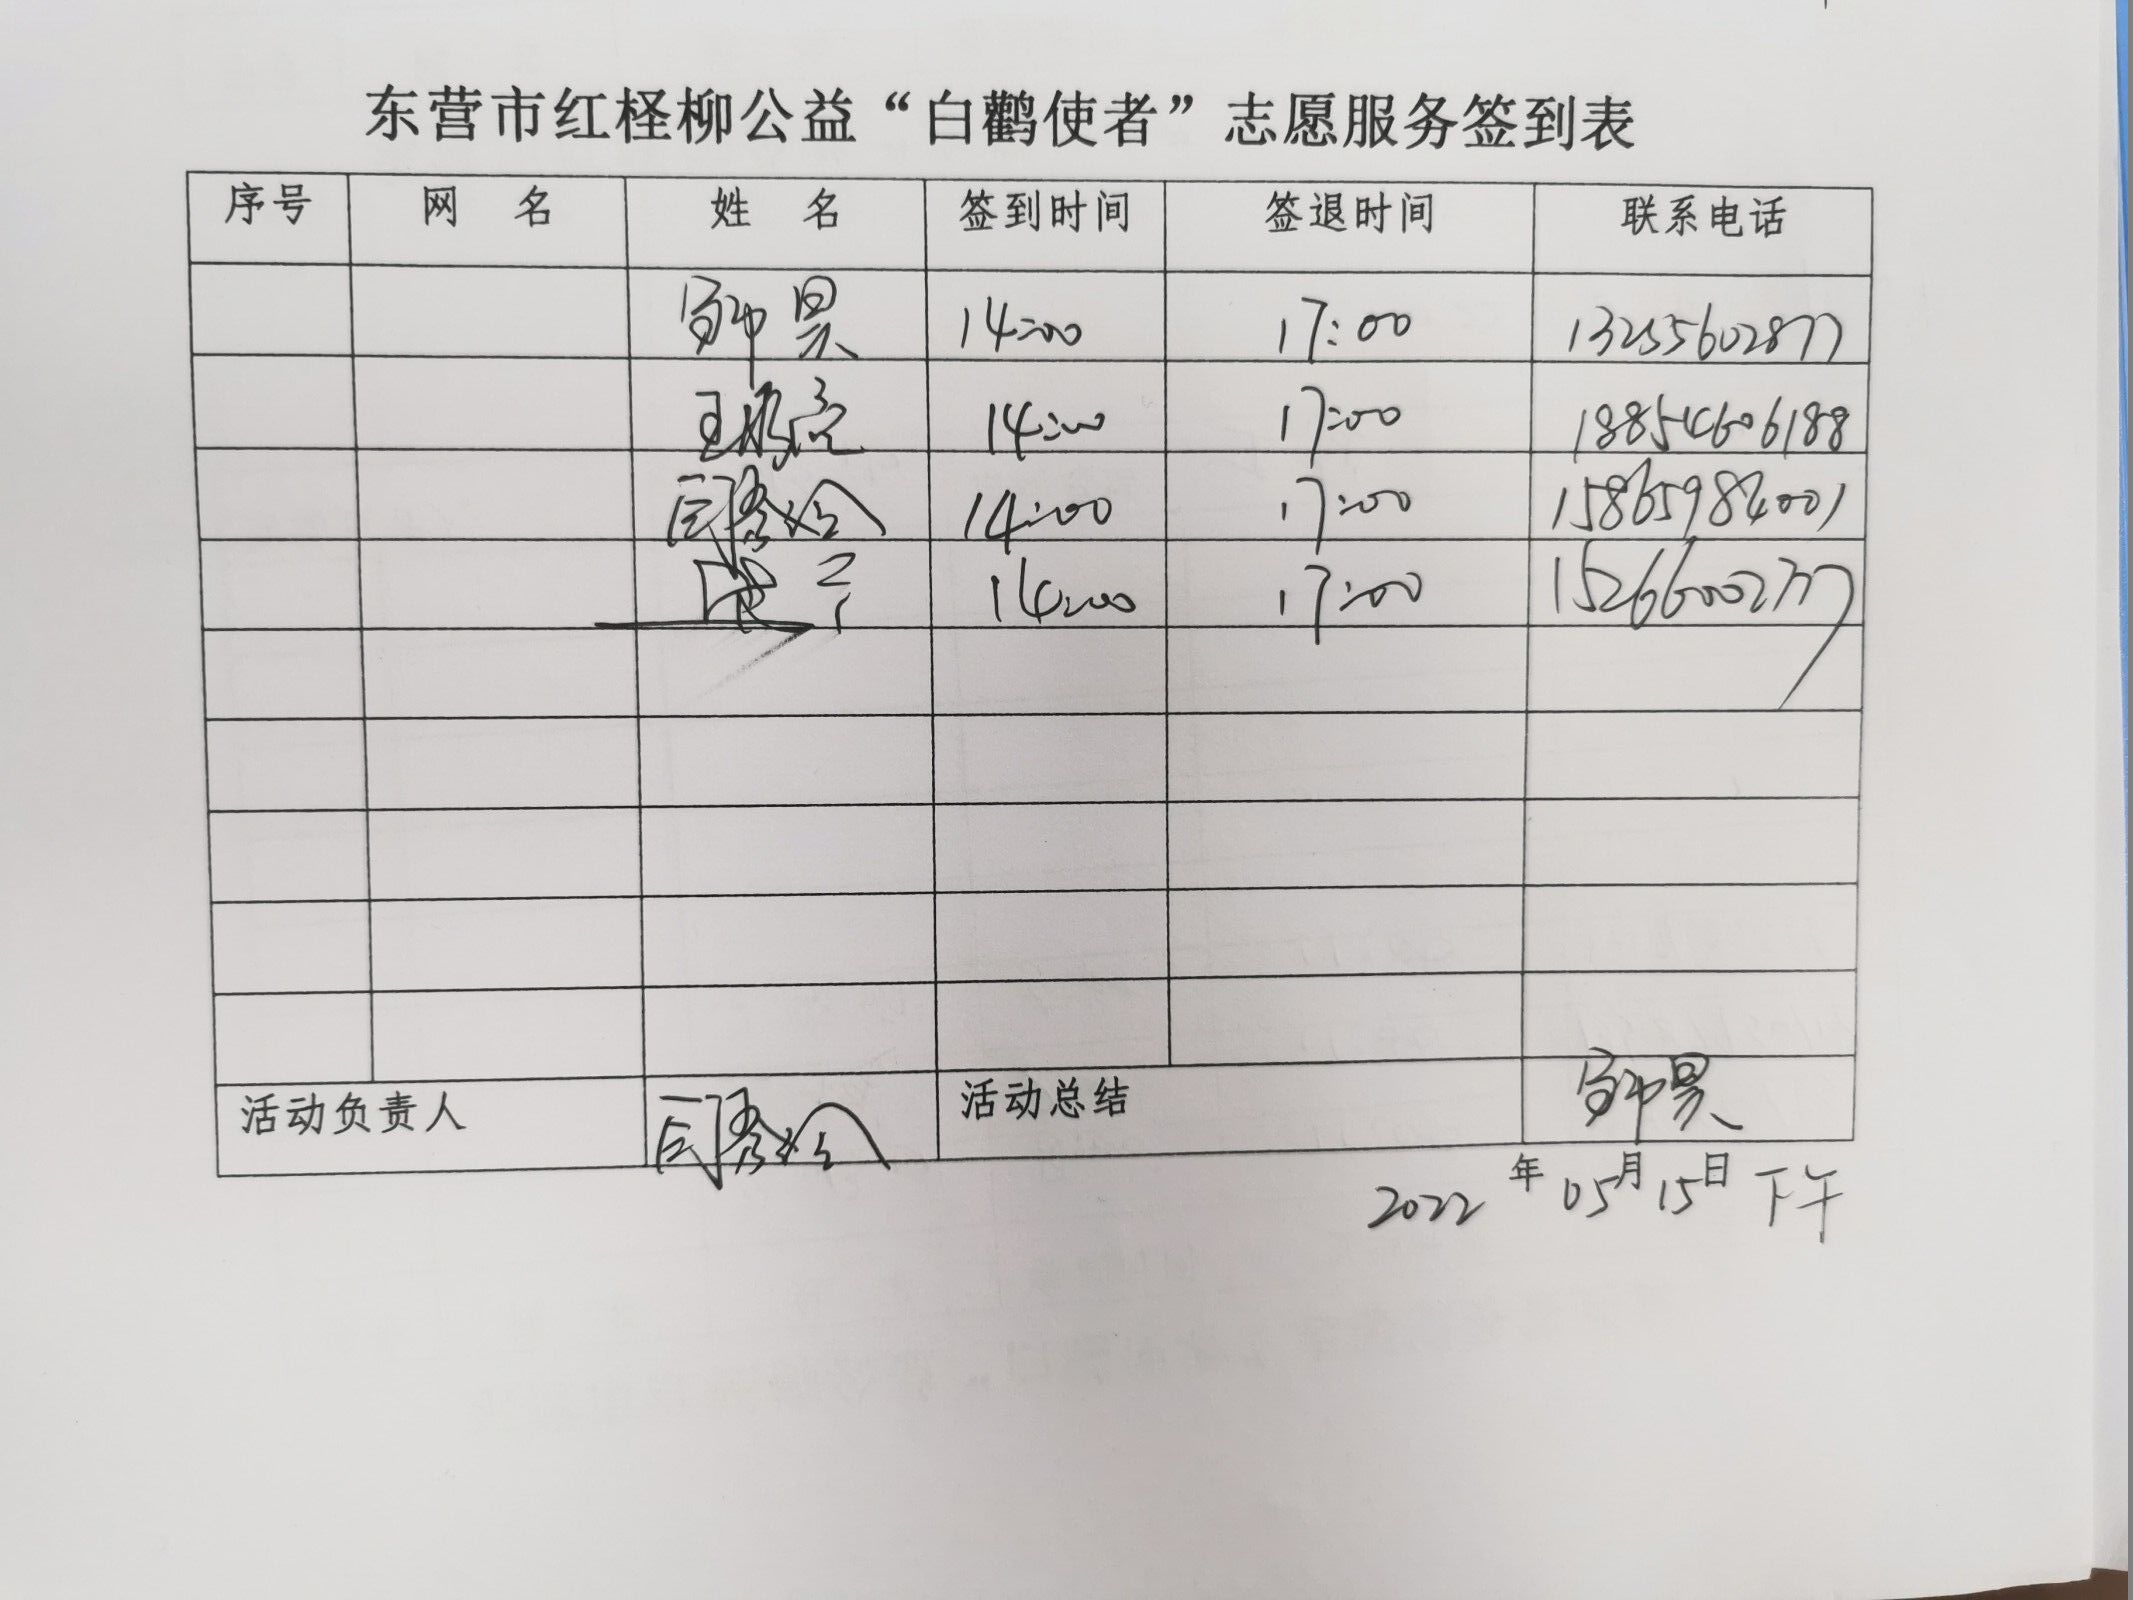 东营市红柽柳公益“白鹳使者”志愿服务签到表
序号 网 名 姓 名 签到时间 签退时间 联系电话
14:00 17:00 13255602877
王鹏亮 14:00 17:00 18854606188
司秀玲 14:00 17:00 15865984001
14:00 17:00
活动负责人 司秀玲 活动总结
2022 年 05月 15日 下午